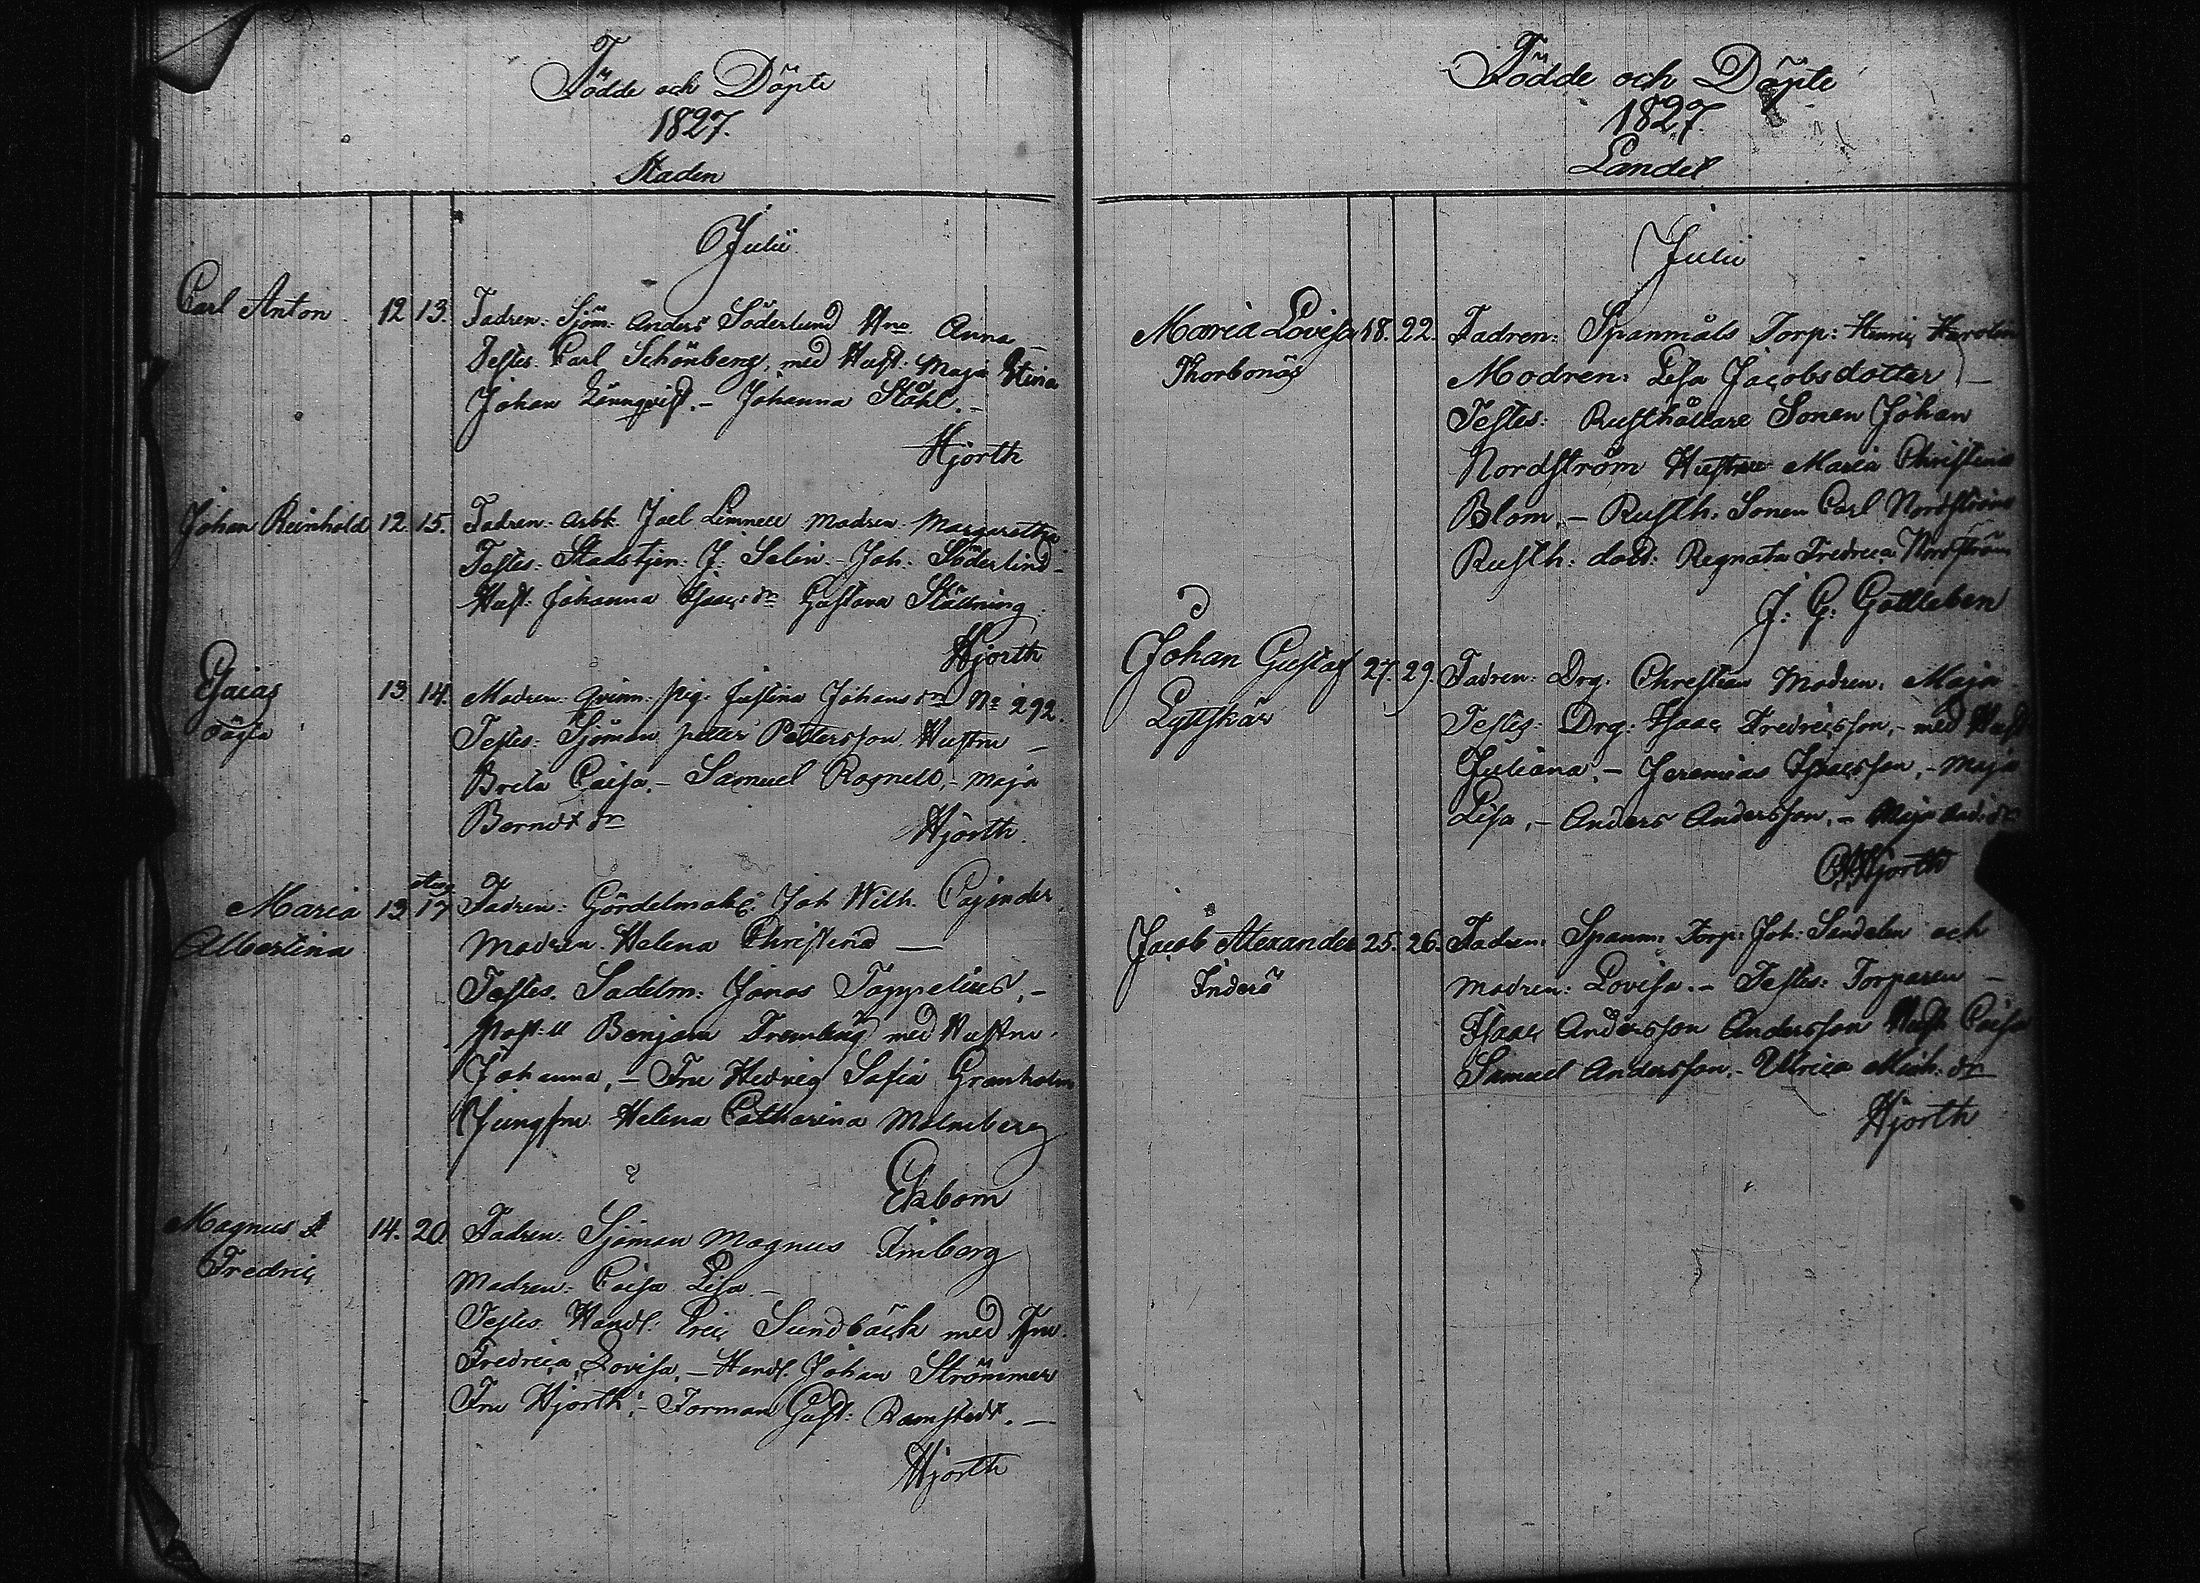 Födde och Döpte
1827.
Staden
Julii
Carl Anton 12 13. Fadren: Sjöm: Anders Söderlund Anna –
Testes. Carl Schönberg, med Hust: Maja Stina
Johan Lönnqvist. – Johanna Ståhl. –
Hjorth
Johan Reinhold 12. 15. Fadren: Arbk. Joel Limnell Modren: Margaretha
Testes: Stadstjen: J: Selin – Joh: Söderlind –
Hust: Johanna Isacs dr Gustava Ställning.
Hjorth
Esaias 13. 14. Modren: qvinn: pig: Justina Johans dr No 292.
oägta Testes: Sjöman Petter Pettersson, Hustru –
Breta Caisa. – Samuel Ragnell, – Maja
Berndt dr Hjorth.
Aug
Maria 13. 17 Fadren: Gördelmak: Joh Wilh. Cajander
Albertina Modren. Helena Christina –
Testes. Sadelm: Jonas Toppelius, –
Benjam med Hustru
Johanna, – Fru Hedvig Sofia Granholm
Jungfru Helena Catharina Malmberg
Ekbom
Magnus 14. 20. Fadren. Sjöman Magnus Imberg
Fredric Modren: Caisa Lisa. –
Testes. Handl: Eric Sundbäck med Fru
Fredrica Lovisa, – Handl. Johan Strömmer
Fru Hjorth, – Forman Gust: Ramstedt. –
Hjorth
Födde och Döpte
1827.
Landet
Julii
Maria Lovisa 18. 22. Fadren: Spanmåls Torp: Henric
Thorbonäs Modren: Lisa Jacobsdotter –
Testes: Rusthållare Sonen Johan
Nordström Hustru Maria Christina
Blom, – Rusth: Sonen Carl Nordström
Rusth: dott: Regnata Fredrica Nordström
J: G: Gottleben
Johan Gustaf 27. 29. Fadren: Drg. Christian Modren: Maja
Lyttskär Testes: Drg: Isaac Fredricsson, – med Hust
Juliana. – Jeremias Isacsson, – Maja
Lisa, – Anders Andersson. – Maja And: dr
Hjorth
Jacob Alexander 25. 26. Fadren: Spanm: Torp: Joh: Sandelin och
Inderö Modren: Lovisa. – Testes: Torparen –
Isaac Andersson Andersson Hust Caisa
Samuel Andersson. – Ulrica Mich: dr
Hjorth